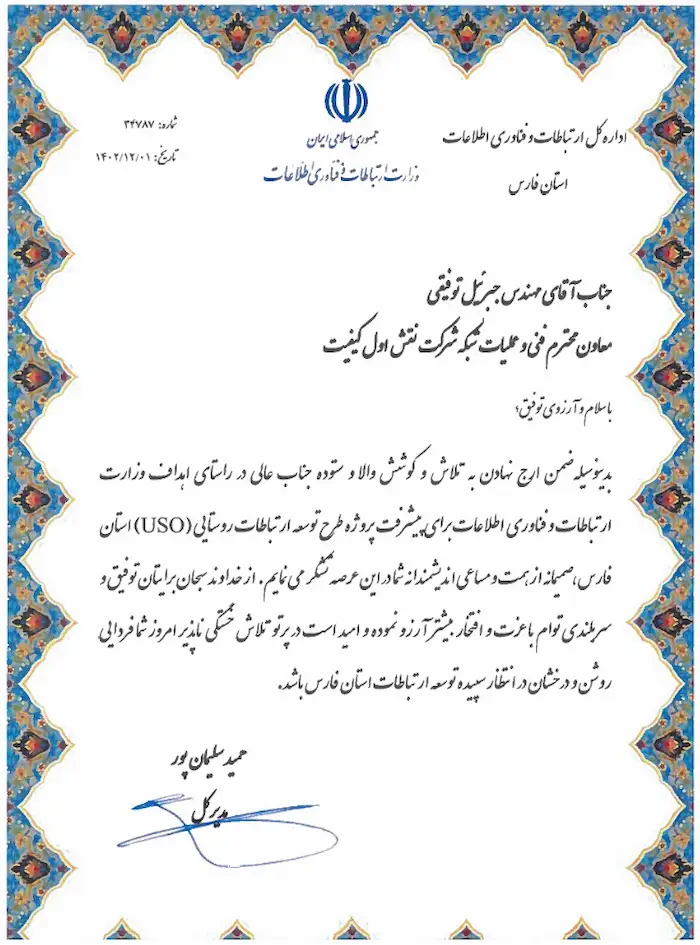 جمهوری اسلامی ایران
وزارت ارتباطات و فناوری اطلاعات
اداره کل ارتباطات و فناوری اطلاعات
استان فارس
شماره: ۳۴۷۸۷
تاریخ: ۱۴۰۲/۱۲/۰۱
جناب آقای مهندس جبرئیل توفیقی
معاون محترم فنی و عملیات شبکه شرکت نقش اول کیفیت
با سلام و آرزوی توفیق؛
بدینوسیله ضمن ارج نهادن به تلاش و کوشش والا و ستوده جناب عالی در راستای اهداف وزارت
ارتباطات و فناوری اطلاعات برای پیشرفت پروژه طرح توسعه ارتباطات روستایی (USO) استان
فارس، صمیمانه از همت و مساعی اندیشمندانه شما در این عرصه تشکر می نمایم. از خداوند سبحان برایتان توفیق و
سربلندی توام با عزت و افتخار بیشتر آرزو نموده و امید است در پرتو تلاش خستگی ناپذیر امروز شما فردایی
روشن و درخشان در انتظار سپیده توسعه ارتباطات استان فارس باشد.
حمید سلیمان پور
مدیر کل